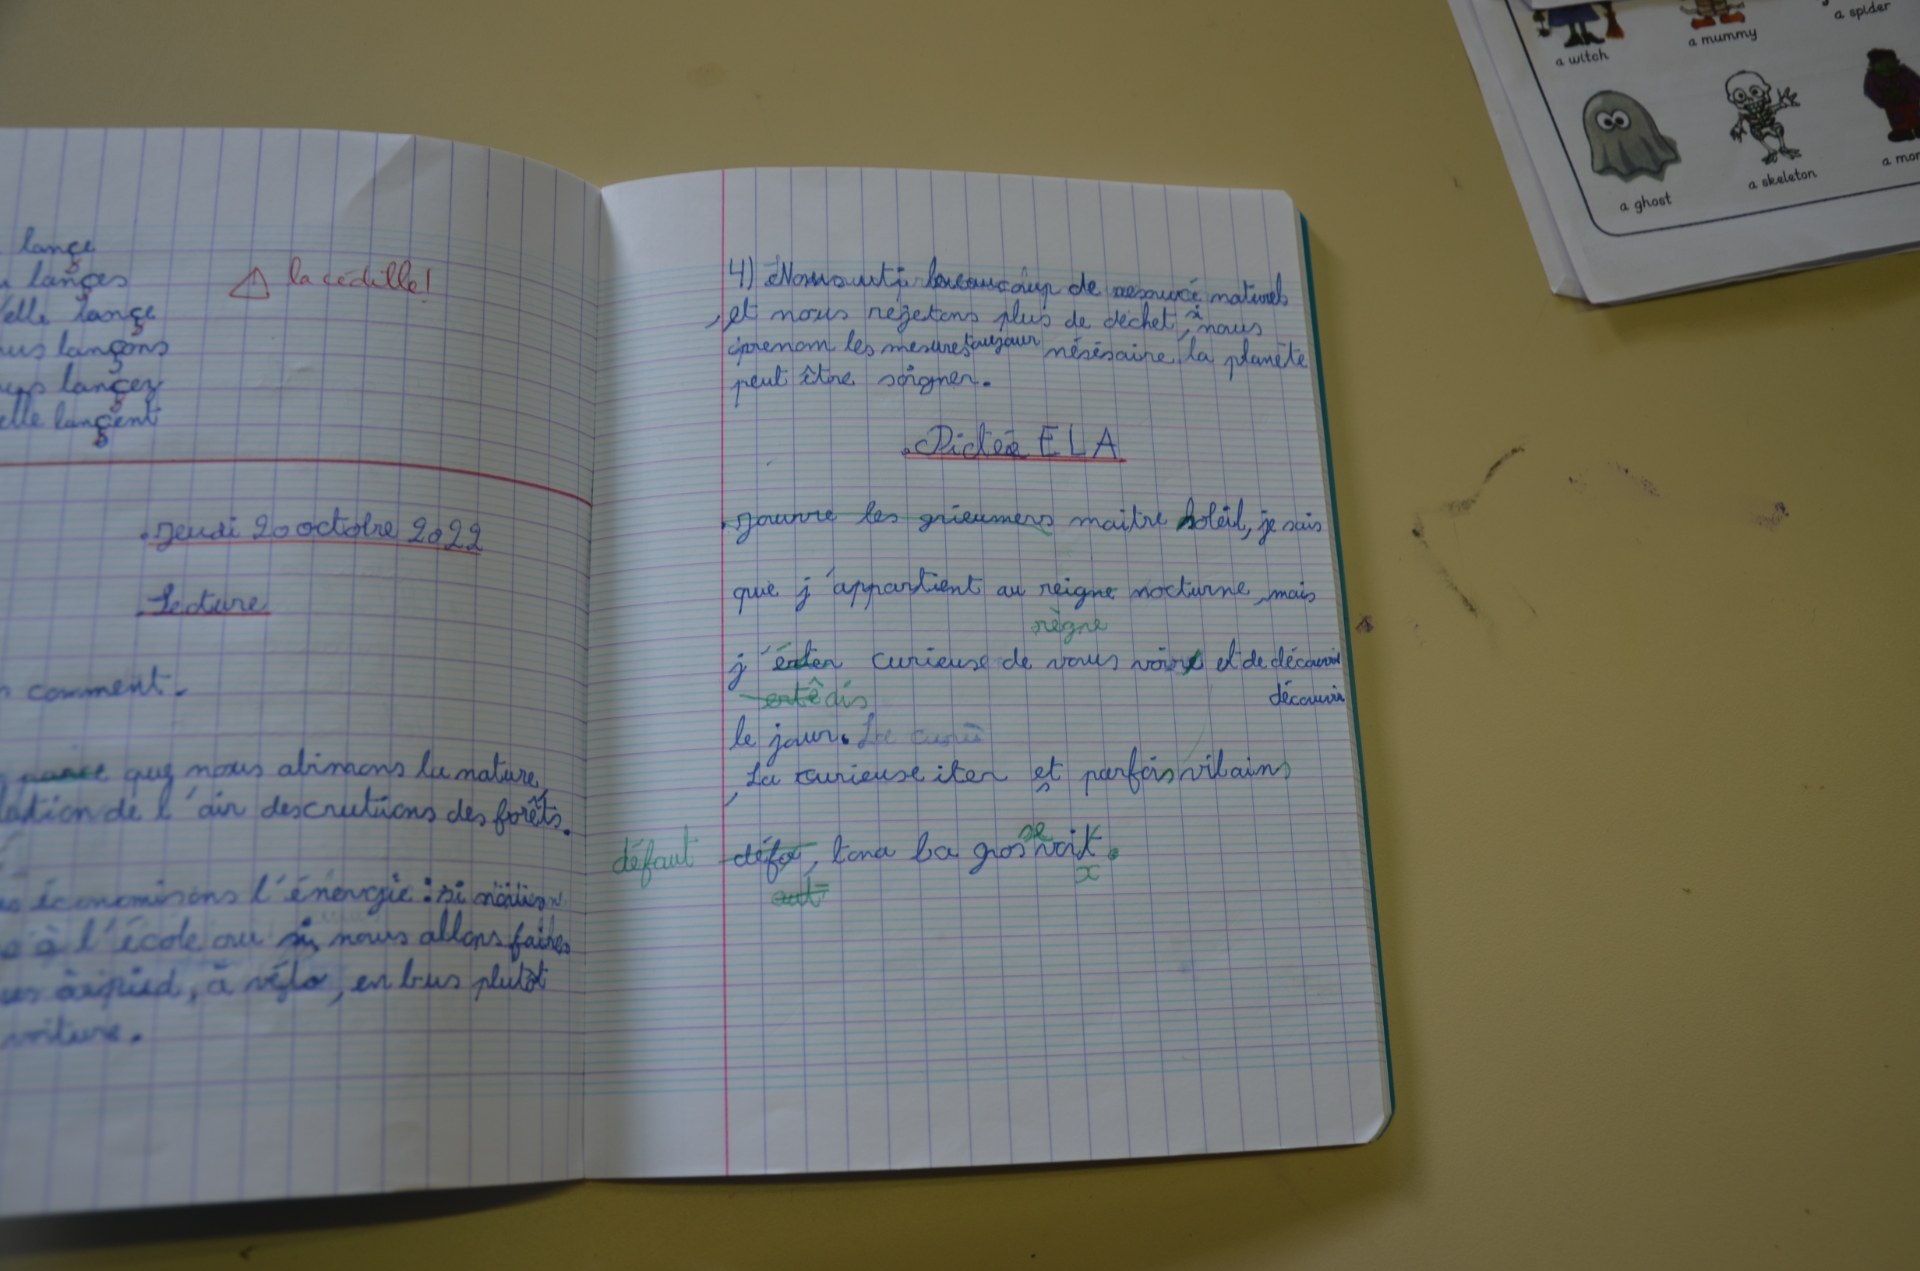 lançe
lançes
elle lançe
lançons
lançez
elle lançent
la cédille!
Jeudi 20 octobre 2022
Lecture
comment.
parce que nous abimons la nature,
lation de l'air descrutions des forêts.
économisons l'énergie : si
à l'école ou si nous allons faire
à pied, à vélo, en bus plutôt
voiture.
4) Nous uti beaucoup de naturels
et nous rejetons plus de déchet, nous
prenom les mesures nésésaire, la planète
peut être soigner.
Dictée ELA
Jouvre les grieumers maitre soleil, je sais
que j'appartient au reigne nocturne, mais
règne
j' curieuse de vous voir et de découvrir
entêdis
le jour.
La curieuse iter et parfois vilains
s
défaut défo, tona la gros voit.
se
aut
x
a witch
a mummy
a spider
a ghost
a skeleton
a mon